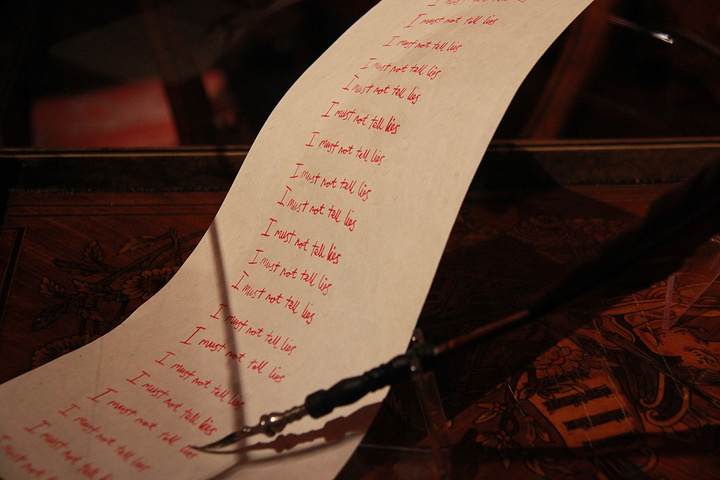 I must not tell lies
I must not tell lies
I must not tell lies
I must not tell lies
I must not tell lies
I must not tell lies
I must not tell lies
I must not tell lies
I must not tell lies
I must not tell lies
I must not tell lies
I must not tell lies
I must not tell lies
I must not tell lies
I must not tell lies
I must not tell lies
I must not tell lies
I must not tell lies
I must not tell
I must not